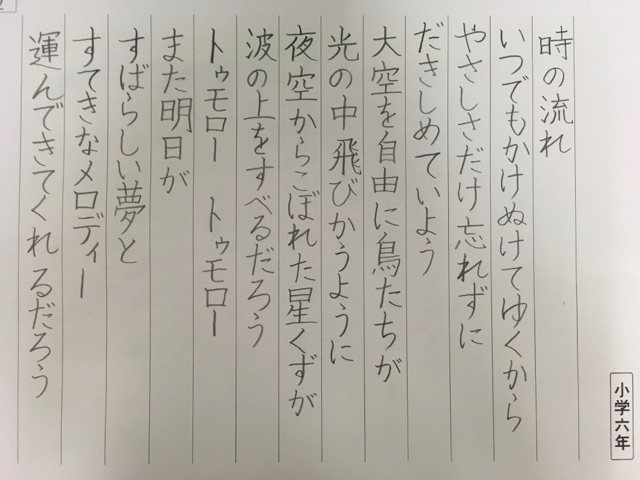 小学六年
時の流れ
いつでもかけぬけてゆくから
やさしさだけ忘れずに
だきしめていよう
大空を自由に鳥たちが
光の中飛びかうように
夜空からこぼれた星くずが
波の上をすべるだろう
トゥモロー　トゥモロー
また明日が
すばらしい夢と
すてきなメロディー
運んできてくれるだろう